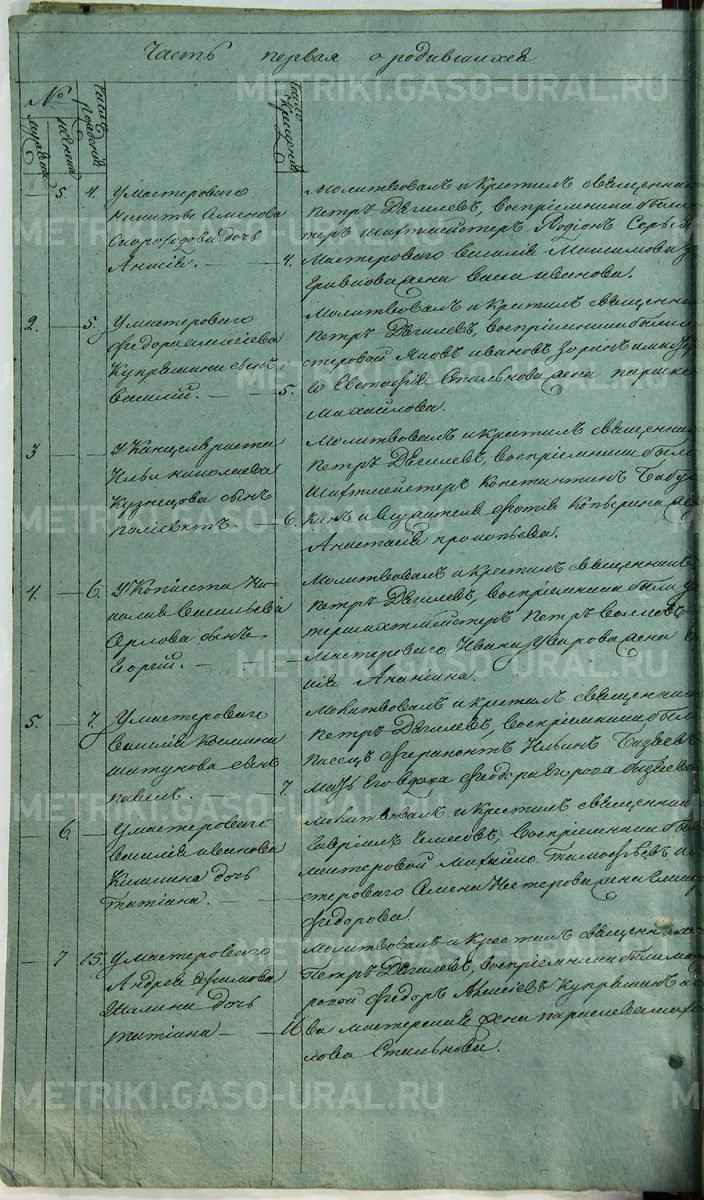 Часть первая о родившихся
№
мужеска
женска
число рождения
число крещения
5. 4. У мастероваго
Никиты Семенова
Скороходова дочь
4.
Молитвовалъ и крестилъ священни
Петръ Дягилевъ, воспріемники были
Шихтмейстеръ Родіонъ
Мастероваго Василія Максимова
жена Васса Иванова.
2. 5. У мастероваго
Федора Алексіева
Купряшина сынъ
Василій. 5.
Молитвовалъ и крестилъ священни
Петръ Дягилевъ, воспріемники были
стеровой Яковъ Ивановъ Зоринъ и мастер
Евстафія Стальнова жена Параске
Михайлова.
3 У Канцеляриста
Ильи Николаева
Кузнецова сынъ
Поліевктъ. 6.
Молитвовалъ и крестилъ священни
Петръ Дягилевъ, воспріемники были
Шихтмейстеръ Константинъ Бабу
кинъ и Фотія Копырина же
Анастасія Прокопьева.
4. 6. У Кописта Ни
колая Васильева
Орлова сынъ
Георгій.
Молитвовалъ и крестилъ священни
Петръ Дягилевъ, воспріемники были у
тершихтмейстеръ Петръ Волковъ
Мастероваго Ивана Уварова жена
нія Ананьина.
5. 7. У мастероваго
Василія Козмина
Шатунова сынъ
Павелъ. 7
Молитвовалъ и крестилъ священни
Петръ Дягилевъ, воспріемники были
Писецъ Ферапонтъ Ильинъ
Мать его вдова Феодора
6. У мастероваго
Василія Иванова
Килина дочь
Татіана.
Молитвовалъ и крестилъ священни
Гавріилъ Чемесовъ, воспріемники бы
мастеровой Михайло Тимофѣевъ и
стероваго Семена Нестерова жена
Федорова.
7 15. У мастероваго
Андрея Ефимова
Шалина дочь
Татіана
Молитвовалъ и крестилъ священни
Петръ Дягилевъ, воспріемники были ма
ровой Федоръ Алексіевъ Купряшинъ
ва мастерская жена Параскева Миха
лова Стальнова.
METRIKI.GASO-URAL.RU